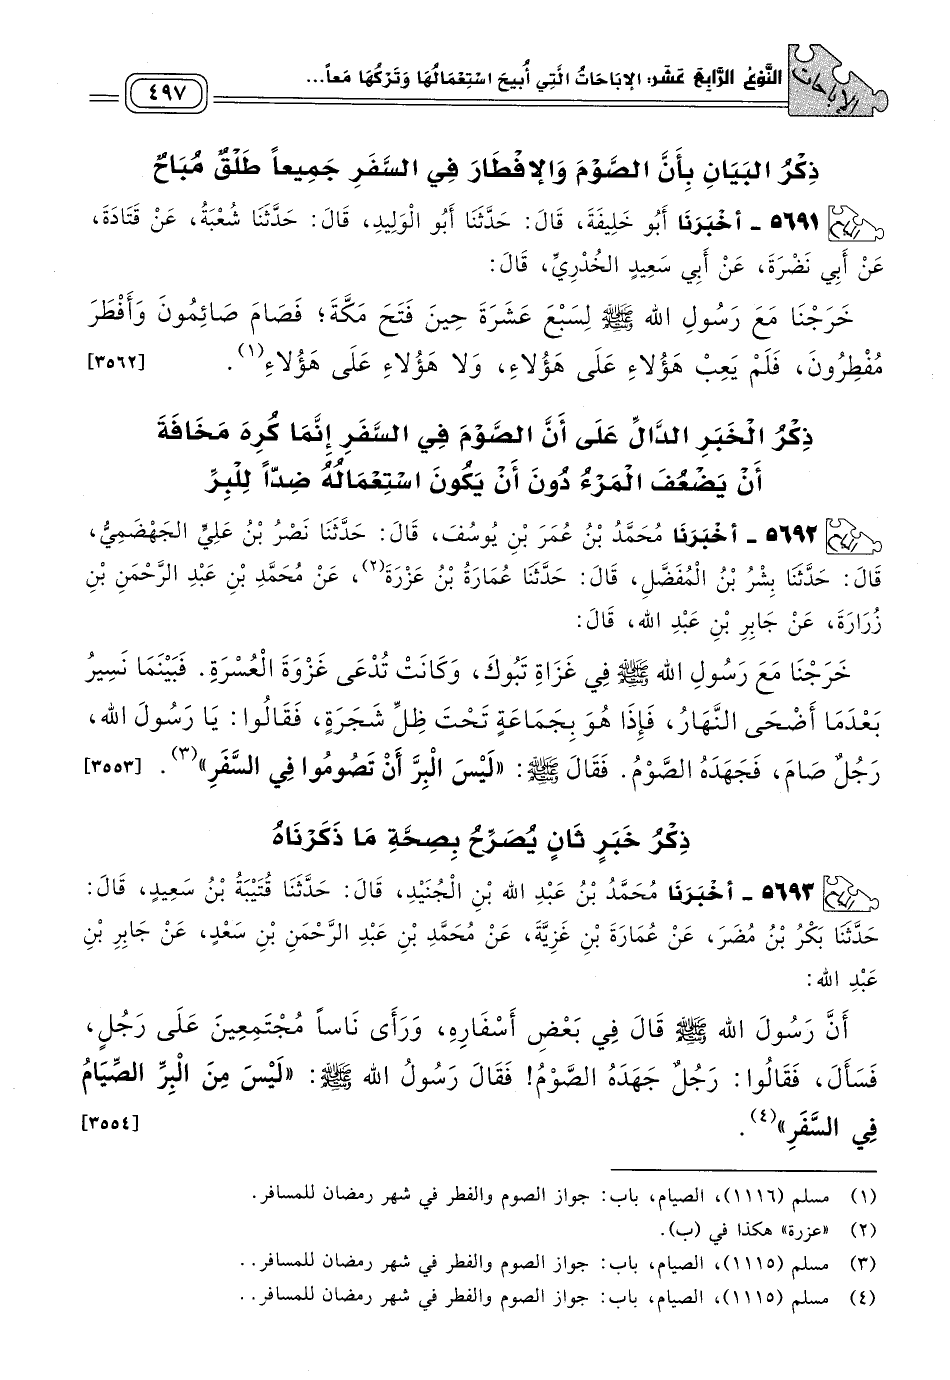 الإباحات
النَّوْعُ الرَّابِعَ عَشَرَ: الإبَاحَاتُ الَّتِي أُبِيحَ اسْتِعْمَالُهَا وَتَرْكُهَا مَعاً...
٤٩٧
ذِكْرُ البَيَانِ بِأَنَّ الصَّوْمَ وَالإفْطَارَ فِي السَّفَرِ جَمِيعاً طَلْقٌ مُبَاحٌ
٥٦٩١ ـ أخْبَرَنَا أَبُو خَلِيفَةَ، قَالَ: حَدَّثَنَا أَبُو الْوَلِيدِ، قَالَ: حَدَّثَنَا شُعْبَةُ، عَنْ قَتَادَةَ،
عَنْ أَبِي نَضْرَةَ، عَنْ أَبِي سَعِيدٍ الخُدْرِيِّ، قَالَ:
خَرَجْنَا مَعَ رَسُولِ الله ﷺ لِسَبْعَ عَشَرَةَ حِينَ فَتَحَ مَكَّةَ؛ فَصَامَ صَائِمُونَ وَأَفْطَرَ
مُفْطِرُونَ، فَلَمْ يَعِبْ هَؤُلاءِ عَلَى هَؤُلاءِ، وَلا هَؤُلاءِ عَلَى هَؤُلاءِ(١). [٣٥٦٢]
ذِكْرُ الْخَبَرِ الدَّالِّ عَلَى أَنَّ الصَّوْمَ فِي السَّفَرِ إِنَّمَا كُرِهَ مَخَافَةَ
أَنْ يَضْعُفَ الْمَرْءُ دُونَ أَنْ يَكُونَ اسْتِعْمَالُهُ ضِدّاً لِلْبِرِّ
٥٦٩٢ ـ أخْبَرَنَا مُحَمَّدُ بْنُ عُمَرَ بْنِ يُوسُفَ، قَالَ: حَدَّثَنَا نَصْرُ بْنُ عَلِيٍّ الجَهْضَمِيُّ،
قَالَ: حَدَّثَنَا بِشْرُ بْنُ الْمُفَضَّلِ، قَالَ: حَدَّثَنَا عُمَارَةُ بْنُ عَزْرَةَ(٢)، عَنْ مُحَمَّدِ بْنِ عَبْدِ الرَّحْمَنِ بْنِ
زُرَارَةَ، عَنْ جَابِرِ بْنِ عَبْدِ الله، قَالَ:
خَرَجْنَا مَعَ رَسُولِ الله ﷺ فِي غَزَاةِ تَبُوكَ، وَكَانَتْ تُدْعَى غَزْوَةَ الْعُسْرَةِ. فَبَيْنَمَا نَسِيرُ
بَعْدَمَا أَضْحَى النَّهَارُ، فَإِذَا هُوَ بِجَمَاعَةٍ تَحْتَ ظِلِّ شَجَرَةٍ، فَقَالُوا: يَا رَسُولَ الله،
رَجُلٌ صَامَ، فَجَهَدَهُ الصَّوْمُ. فَقَالَ ﷺ: «لَيْسَ الْبِرَّ أَنْ تَصُومُوا فِي السَّفَرِ»(٣). [٣٥٥٣]
ذِكْرُ خَبَرٍ ثَانٍ يُصَرِّحُ بِصِحَّةِ مَا ذَكَرْنَاهُ
٥٦٩٣ ـ أخْبَرَنَا مُحَمَّدُ بْنُ عَبْدِ الله بْنِ الْجُنَيْدِ، قَالَ: حَدَّثَنَا قُتَيْبَةُ بْنُ سَعِيدٍ، قَالَ:
حَدَّثَنَا بَكْرُ بْنُ مُضَرَ، عَنْ عُمَارَةَ بْنِ غَزِيَّةَ، عَنْ مُحَمَّدِ بْنِ عَبْدِ الرَّحْمَنِ بْنِ سَعْدٍ، عَنْ جَابِرِ بْنِ
عَبْدِ الله:
أَنَّ رَسُولَ الله ﷺ قَالَ فِي بَعْضِ أَسْفَارِهِ، وَرَأَى نَاساً مُجْتَمِعِينَ عَلَى رَجُلٍ،
فَسَأَلَ، فَقَالُوا: رَجُلٌ جَهَدَهُ الصَّوْمُ! فَقَالَ رَسُولُ الله ﷺ: «لَيْسَ مِنَ الْبِرِّ الصِّيَامُ
فِي السَّفَرِ»(٤). [٣٥٥٤]
(١) مسلم (١١١٦)، الصيام، باب: جواز الصوم والفطر في شهر رمضان للمسافر.
(٢) «عزرة» هكذا في (ب).
(٣) مسلم (١١١٥)، الصيام، باب: جواز الصوم والفطر في شهر رمضان للمسافر..
(٤) مسلم (١١١٥)، الصيام، باب: جواز الصوم والفطر في شهر رمضان للمسافر..